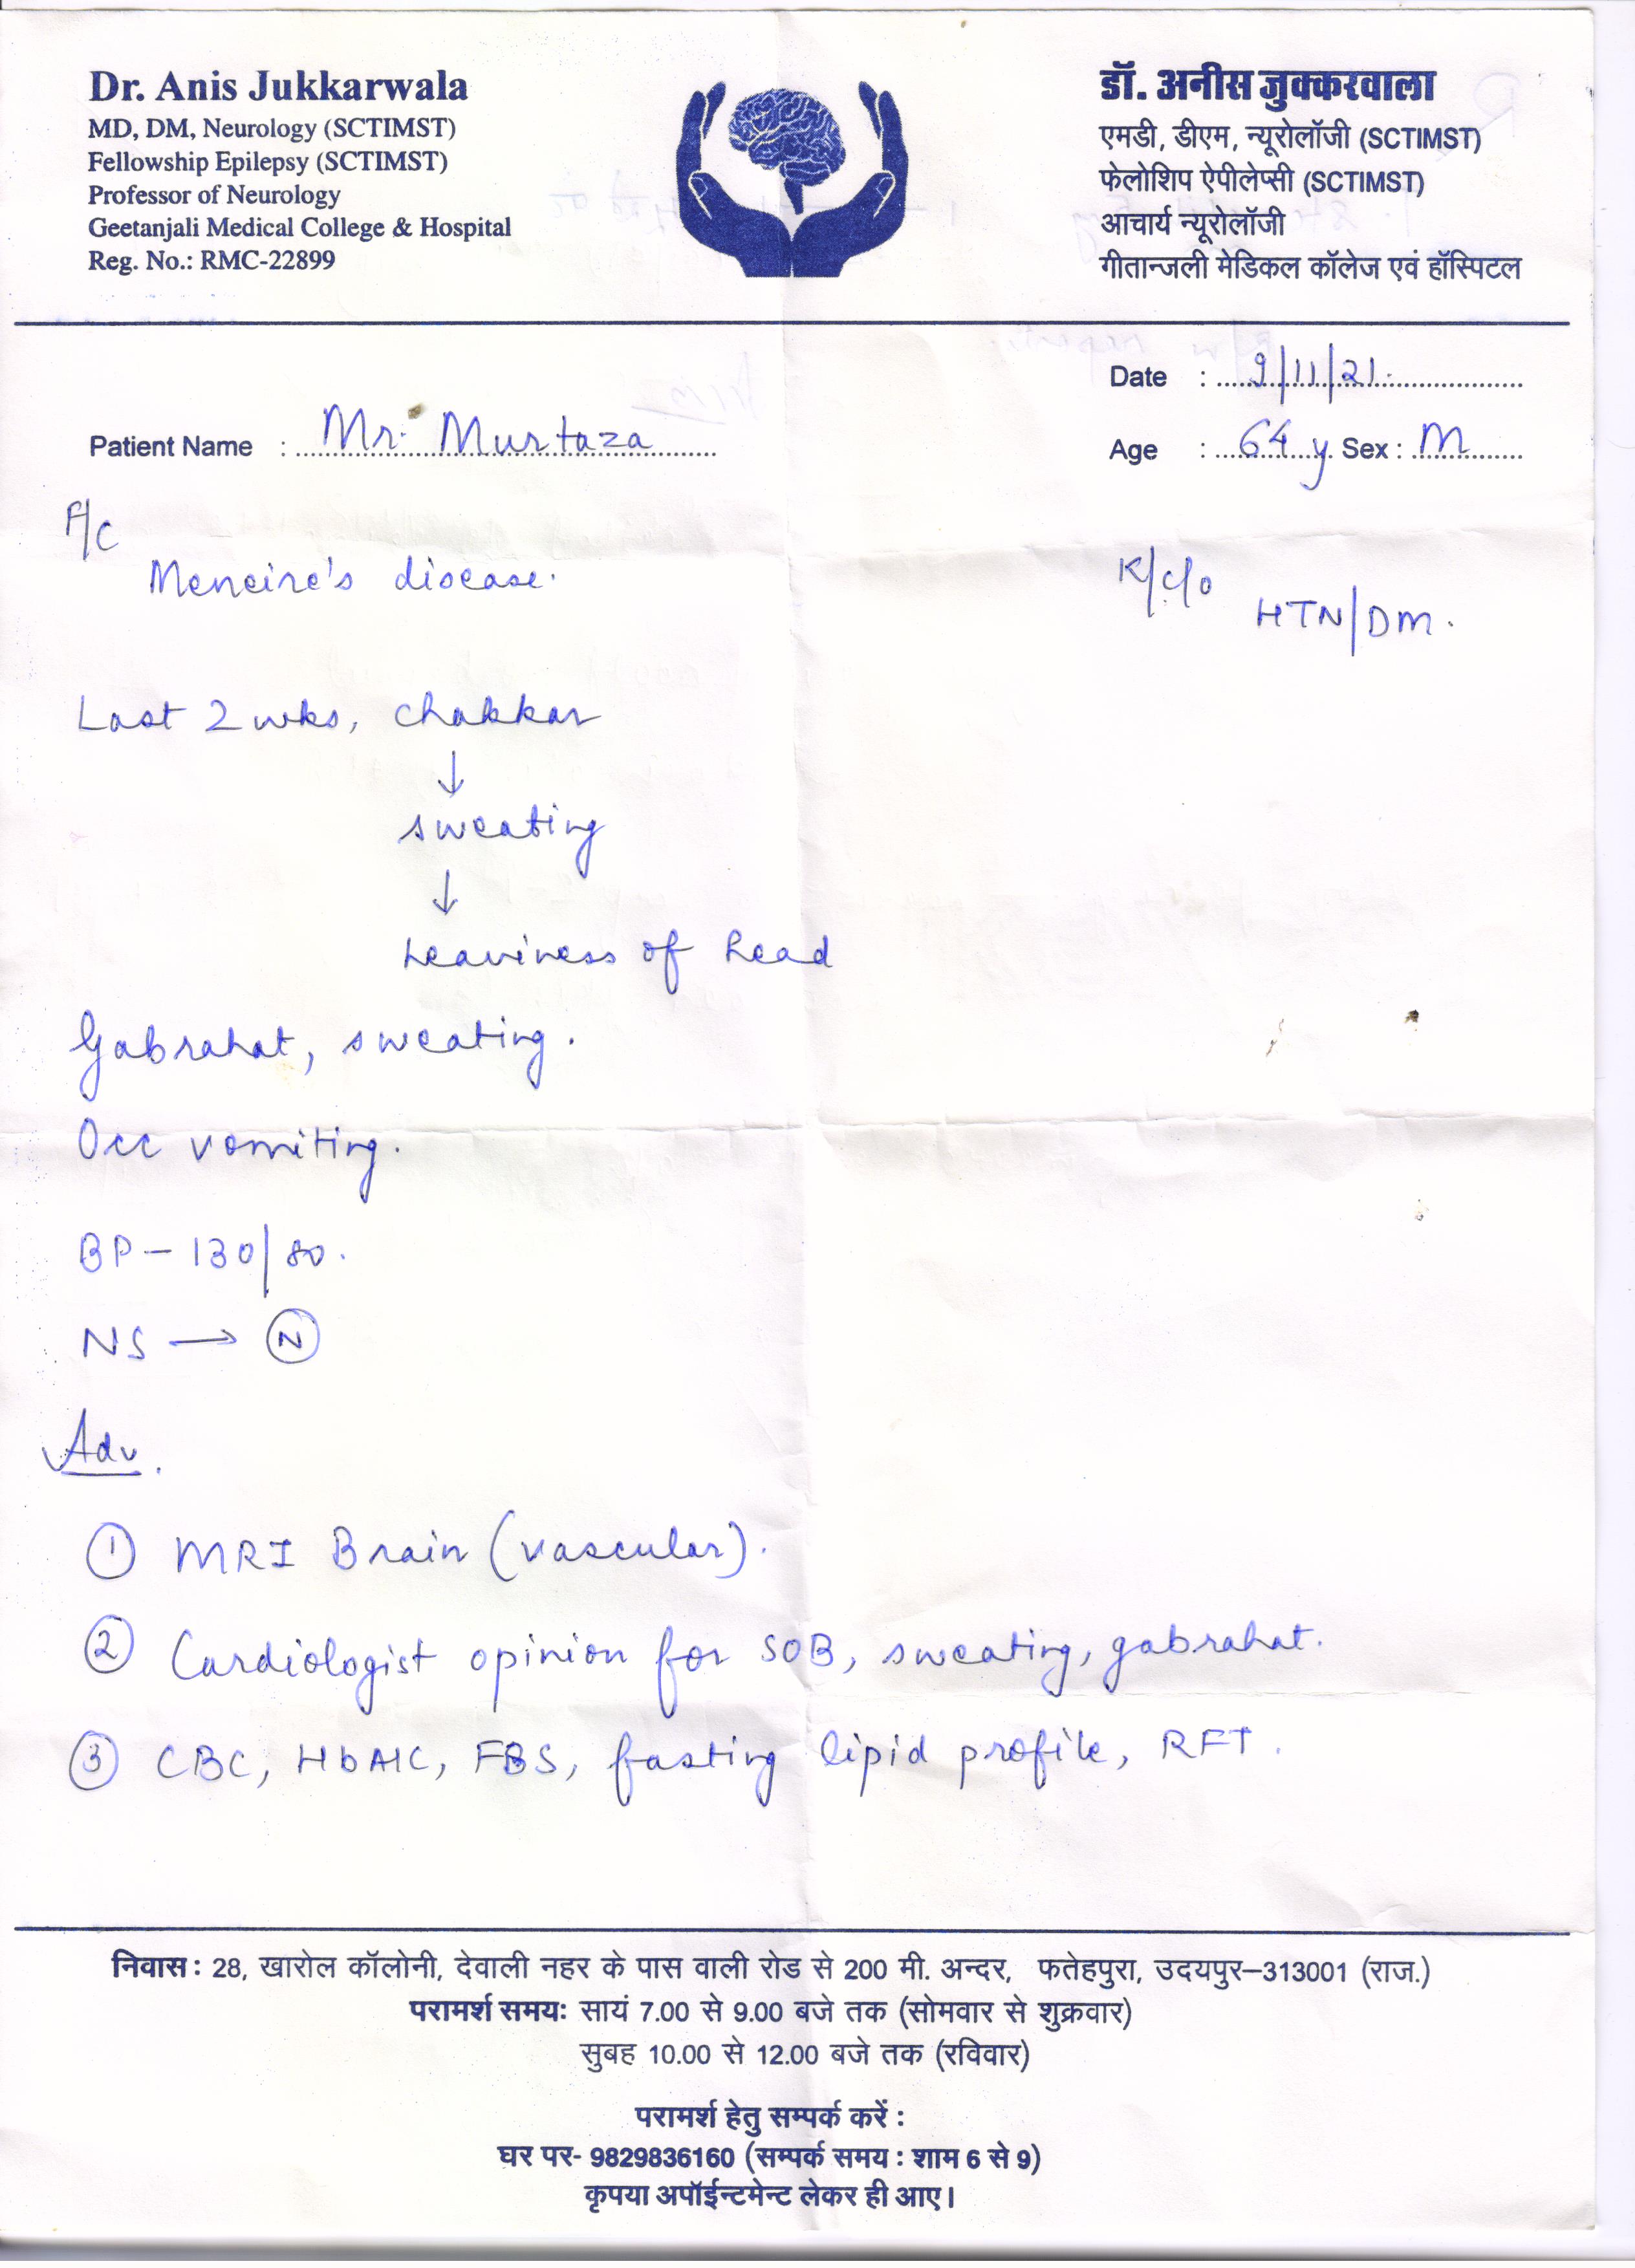 Dr. Anis Jukkarwala
MD, DM, Neurology (SCTIMST)
Fellowship Epilepsy (SCTIMST)
Professor of Neurology
Geetanjali Medical College & Hospital
Reg. No.: RMC-22899
डॉ. अनीस जुक्करवाला
एमडी, डीएम, न्यूरोलॉजी (SCTIMST)
फेलोशिप ऐपीलेप्सी (SCTIMST)
आचार्य न्यूरोलॉजी
गीतान्जली मेडिकल कॉलेज एवं हॉस्पिटल
Date : 9/11/21.
Patient Name : Mr. Murtaza
Age : 64 y Sex : M
F/C
Meneire's disease.
K/c/o
HTN/DM.
Last 2 wks, chakkar
↓
sweating
↓
heaviness of head
Gabrahat, sweating.
Occ vomiting.
BP – 130/80.
NS → N
Adv.
1 MRI Brain (vascular).
2 Cardiologist opinion for SOB, sweating, gabrahat.
3 CBC, HbA1C, FBS, fasting lipid profile, RFT.
निवास : 28, खारोल कॉलोनी, देवाली नहर के पास वाली रोड से 200 मी. अन्दर, फतेहपुरा, उदयपुर–313001 (राज.)
परामर्श समयः सायं 7.00 से 9.00 बजे तक (सोमवार से शुक्रवार)
सुबह 10.00 से 12.00 बजे तक (रविवार)
परामर्श हेतु सम्पर्क करें :
घर पर- 9829836160 (सम्पर्क समय : शाम 6 से 9)
कृपया अपॉईन्टमेन्ट लेकर ही आए।